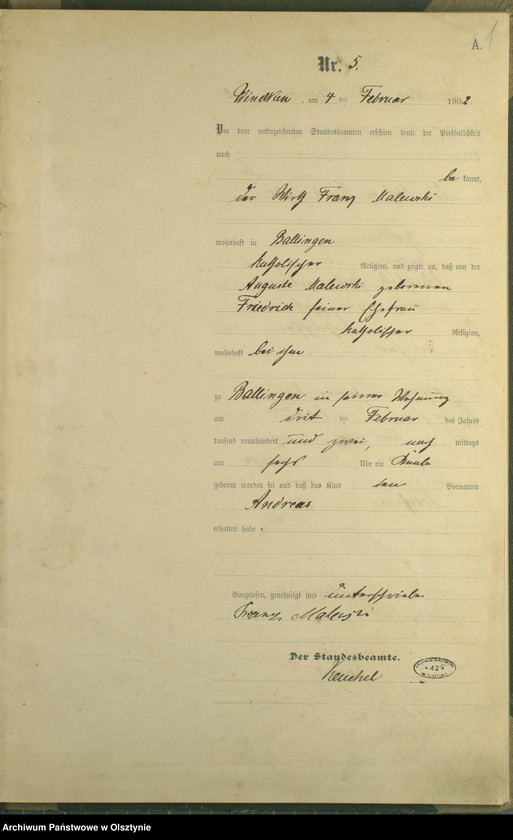 A. 1
Nr. 5.
Windtken, am 4 ten Februar 1902.
Vor dem unterzeichneten Standesbeamten erschien heute der Persönlichkeit
nach
be kannt,
der Wirth Franz Malewski
wohnhaft in Ballingen
katholischer Religion, und zeigte an, daß von der
Auguste Malewski geborenen
Friedrich seiner Ehefrau
katholischer Religion,
wohnhaft bei ihm
zu Ballingen in seiner Wohnung
am drit ten Februar des Jahres
tausend neunhundert und zwei, nach mittags
um sechs Uhr ein Knabe
geboren worden sei und daß das Kind den Vornamen
Andreas
erhalten habe.
Vorgelesen, genehmigt und unterschrieben
Franz Malewski
Der Standesbeamte.
424
Archiwum Państwowe w Olsztynie